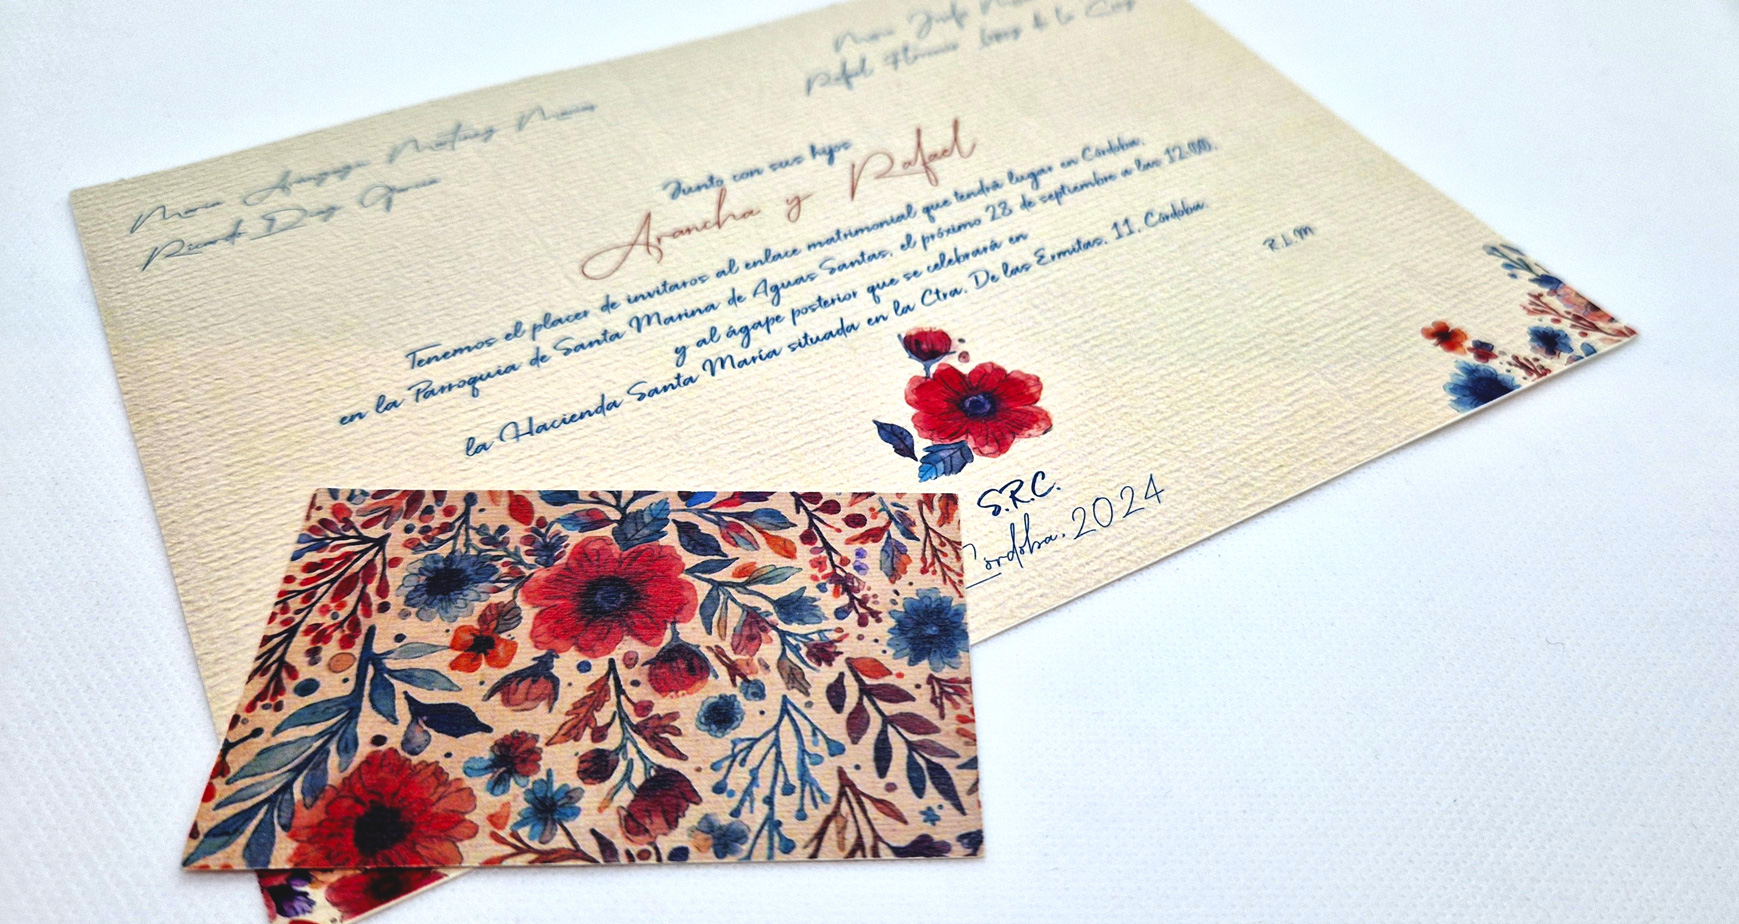 María Aranzazu Martínez Macías
Ricardo Diaz García
Rafael Florencio López de la
Junto con sus hijos
Arancha y Rafael
Tenemos el placer de invitaros al enlace matrimonial que tendrá lugar en Córdoba,
en la Parroquia de Santa Marina de Aguas Santas, el próximo 28 de septiembre a las 12:00,
y al ágape posterior que se celebrará en
la Hacienda Santa María situada en la Ctra. De las Ermitas, 11, Córdoba.
R.L.M
S.R.C.
Córdoba, 2024